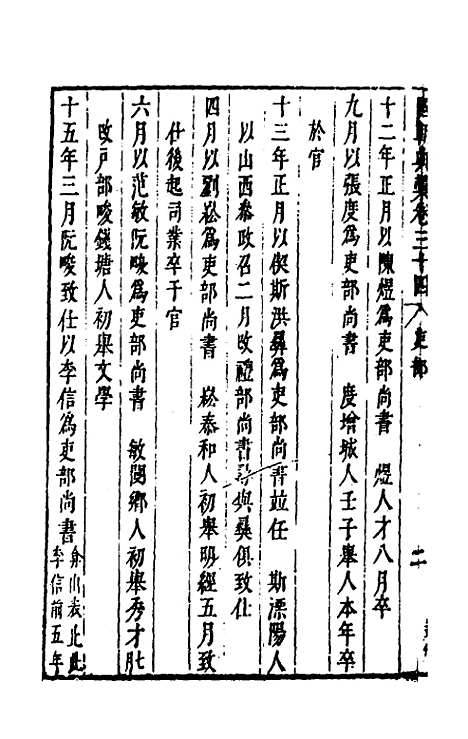 國朝典彙卷三十四 吏部 二
十二年正月以陳煜爲吏部尚書 煜人才八月卒
九月以張度爲吏部尚書 度增城人壬子舉人本年卒
於官
十三年正月以偰斯洪彝爲吏部尚書並任 斯溧陽人
以山西叅政召二月改禮部尚書尋與彝俱致仕
四月以劉崧爲吏部尚書 崧泰和人初舉明經五月致
仕後起司業卒于官
六月以范敏阮畯爲吏部尚書 敏閿鄉人初舉秀才七月
改戶部畯錢塘人初舉文學
十五年三月阮畯致仕以李信爲吏部尚書 弇山表止此
李信前五年